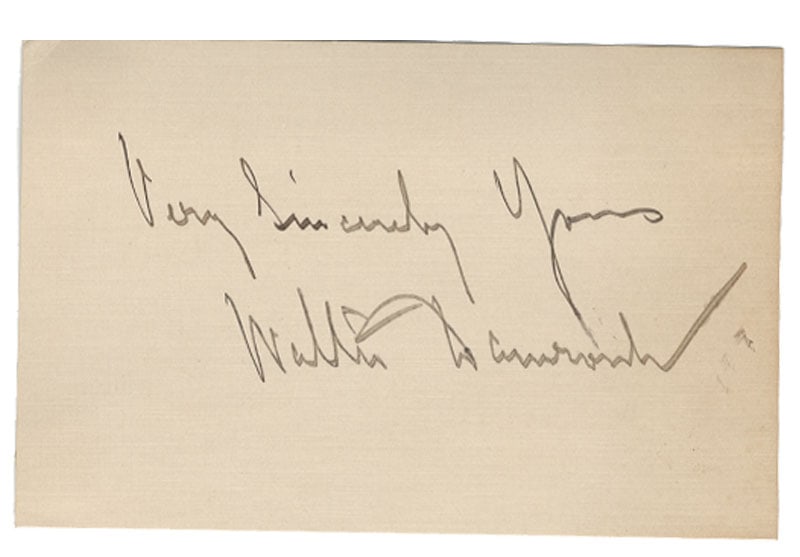 Very Sincerely Yours
Walter Damrosch